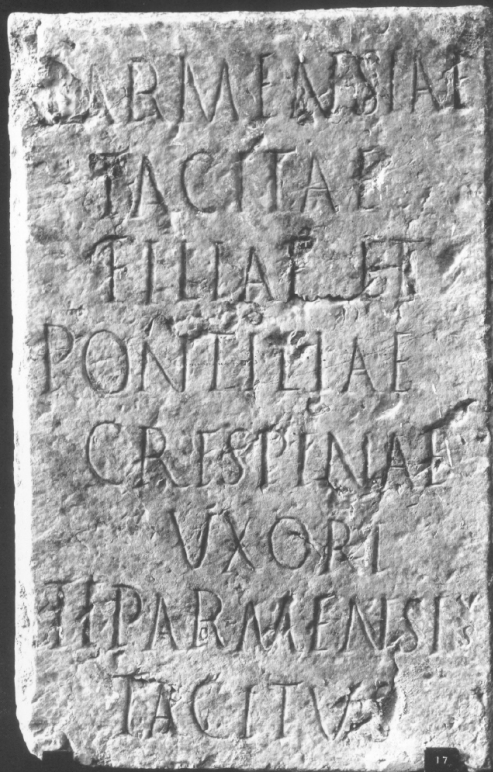 PARMENSIAE
TACITAE
FILIAE ET
PONTILIAE
CRESPINAE
VXORI
TI PARMENSIVS
TACITVS
17